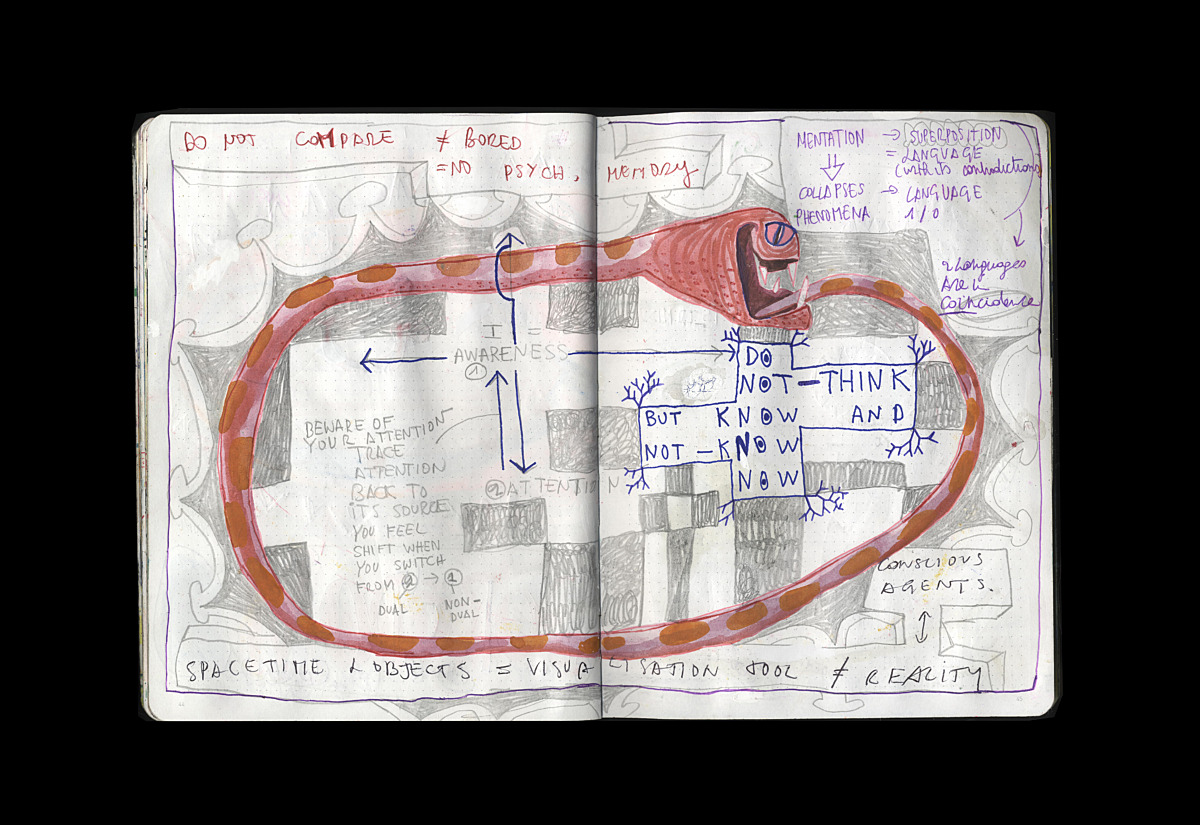 DO NOT COMPARE ≠ BORED
= NO PSYCH, MEMORY
MENTATION → SUPERPOSITION
= LANGUAGE
(with its contradictions)
COLLAPSES → LANGUAGE
PHENOMENA 1/0
2 Languages
Are in
Coincidence
I =
AWARENESS
1
DO
NOT — THINK
BUT KNOW AND
NOT — KNOW
NOW
BEWARE OF
YOUR ATTENTION
TRACE
ATTENTION
BACK TO
ITS SOURCE
YOU FEEL
SHIFT WHEN
YOU SWITCH
FROM 2 → 1
DUAL NON-
DUAL
2 ATTENTION
CONSCIOUS
AGENTS.
SPACETIME & OBJECTS = VISUALISATION TOOL ≠ REALITY